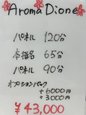 Aroma Dione
パネル 120分
本指名 65分
パネル 90分
オプションバック
+6000円
+3000円
¥43,000